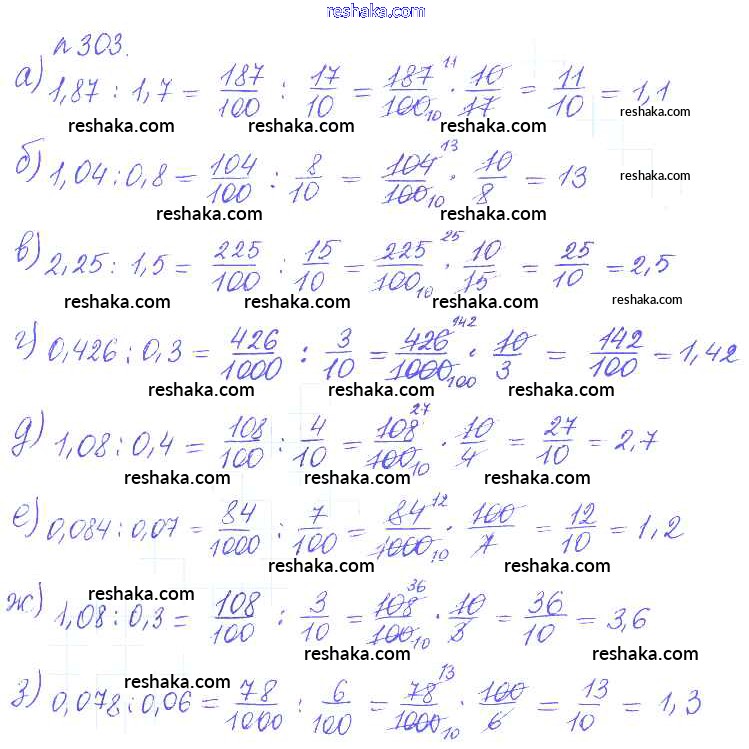 reshaka.com
n 303.
а) 1,87 : 1,7 = 187/100 : 17/10 = 187 11/100 10 · 10/17 = 11/10 = 1,1
reshaka.com reshaka.com reshaka.com reshaka.com
б) 1,04 : 0,8 = 104/100 : 8/10 = 104 13/100 10 · 10/8 = 13
reshaka.com reshaka.com reshaka.com
в) 2,25 : 1,5 = 225/100 : 15/10 = 225 25/100 10 · 10/15 = 25/10 = 2,5
reshaka.com reshaka.com reshaka.com
г) 0,426 : 0,3 = 426/1000 : 3/10 = 426 142/1000 100 · 10/3 = 142/100 = 1,42
reshaka.com reshaka.com reshaka.com
д) 1,08 : 0,4 = 108/100 : 4/10 = 108 27/100 10 · 10/4 = 27/10 = 2,7
reshaka.com reshaka.com reshaka.com
е) 0,084 : 0,07 = 84/1000 : 7/100 = 84 12/1000 10 · 100/7 = 12/10 = 1,2
reshaka.com reshaka.com reshaka.com
ж) 1,08 : 0,3 = 108/100 : 3/10 = 108 36/100 10 · 10/3 = 36/10 = 3,6
reshaka.com reshaka.com reshaka.com
з) 0,078 : 0,06 = 78/1000 : 6/100 = 78 13/1000 10 · 100/6 = 13/10 = 1,3
reshaka.com reshaka.com reshaka.com